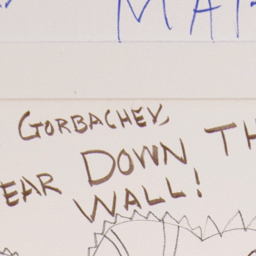 MAT
GORBACHEV,
EAR DOWN TH
WALL!